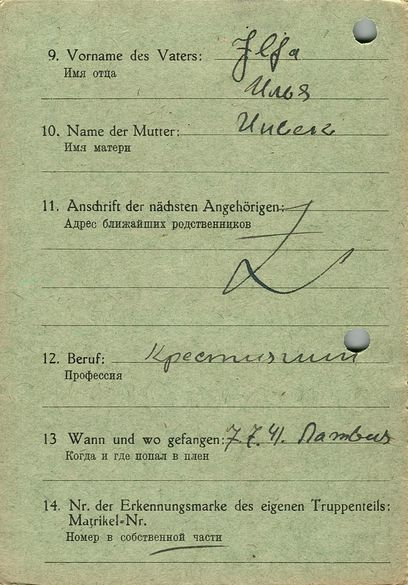 9. Vorname des Vaters: Ilja
Имя отца
Илья
10. Name der Mutter:
Имя матери
11. Anschrift der nächsten Angehörigen:
Адрес ближайших родственников
12. Beruf:
Профессия
13 Wann und wo gefangen: 7.7.41. Латвия
Когда и где попал в плен
14. Nr. der Erkennungsmarke des eigenen Truppenteils:
Matrikel-Nr.
Номер в собственной части